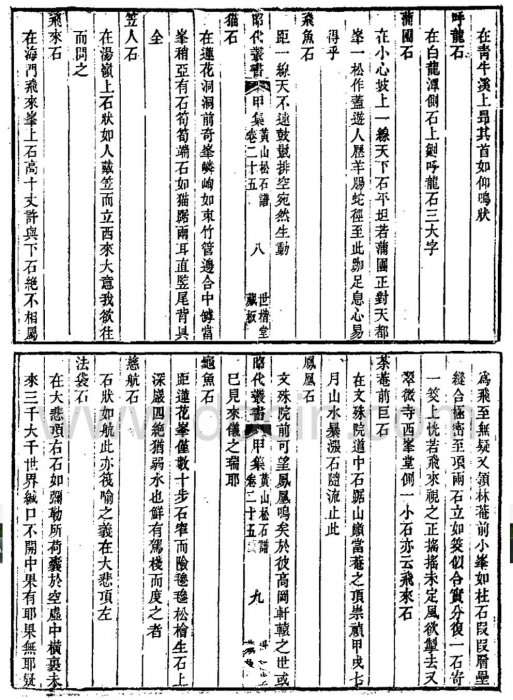 在青牛溪上昂其首如仰鳴狀
呼龍石
在白龍潭側石上鐫呼龍石三大字
蒲團石
在小心坡上一線天下石平坦若蒲團正對天都
峯一松作蓋遊人歷羊腸蛇徑至此跏足息心易
得乎
飛魚石
距一線天不遠鼓鬛排空宛然生動
昭代叢書 甲集 黃山松石譜 卷二十五 八 世楷堂藏板
猫石
在蓮花洞洞前奇峯嶙峋如束竹管邊合中罅當
峯稍亞有石筍筍端石如猫踞兩耳直豎尾背具
全
笠人石
在湯嶺上石狀如人戴笠而立西來大意我欲往
而問之
飛來石
在海門飛來峯上石高十丈許與下石絕不相屬
爲飛至無疑又領林菴前小峯如柱石段段層壘
縫合極密至頂兩石立如筊似合實分復一石嵌
一筊上恍若飛來視之正搖搖未定風欲掣去又
翠微寺西峯堂側一小石亦云飛來石
茶菴前巨石
在文殊院道中石踞山巔當菴之頂崇禎甲戌七
月山水暴漲石隨流止此
鳳凰石
文殊院前可望鳳凰鳴矣於彼高岡軒轅之世或
已見來儀之瑞耶
昭代叢書 甲集 黃山松石譜 卷二十五 九
龜魚石
距蓮花峯僅數十步石窄而險虬松檜生石上
深巖四絕猶弱水也鮮有駕棧而度之者
慈航石
石狀如航此亦筏喻之義在大悲頂左
法袋石
在大悲頂右石如彌勒所荷囊於空虛中橫裹未
來三千大千世界緘口不開中果有耶果無耶疑